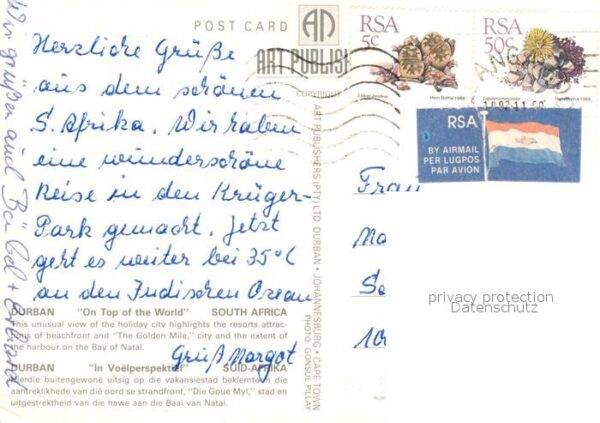 POST CARD
AN
ART PUBLISH
COPYRIGHT
Herzliche Grüße
aus dem schönen
S. Afrika. Wir haben
eine wunderschöne
Reise in den Krüger-
Park gemacht. Jetzt
geht es weiter bei 35°C
an den Indischen Ozean
Gruß Margot
Wir grüßen auch Bärbel + Gerhard
DURBAN "On Top of the World" SOUTH AFRICA
This unusual view of the holiday city highlights the resorts attrac-
tions of beachfront and "The Golden Mile," city and the extent of
the harbour on the Bay of Natal.
DURBAN "In Voëlperspektief" SUID-AFRIKA
Hierdie buitengewone uitsig op die vakansiestad beklemtoon die
aantreklikhede van dié oord se strandfront, "Die Goue Myl," stad en
uitgestrektheid van die hawe aan die Baai van Natal.
ART PUBLISHERS (PTY) LTD DURBAN • JOHANNESBURG • CAPE TOWN
PHOTO: GONSUL PILLAY
RSA
5c
Hein Botha 1988
RSA
50c
Hein Botha 1988
RSA
BY AIRMAIL
PER LUGPOS
PAR AVION
Frau
privacy protection
Datenschutz